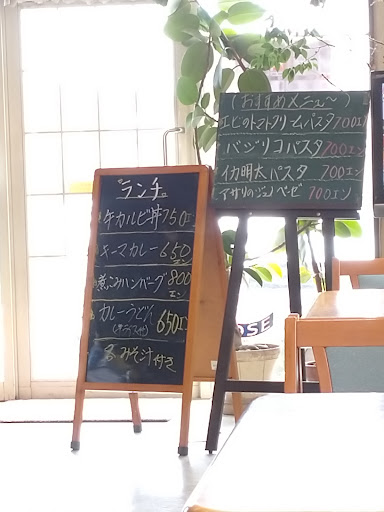 ランチ
牛カルビ丼 750エン
キーマカレー 650エン
煮こみハンバーグ 800エン
カレーうどん 650エン
みそ汁付き
(おすすめメニュー)
エビのトマトクリームパスタ 700エン
バジリコパスタ 700エン
イカ明太パスタ 700エン
アサリのジェノベーゼ 700エン
OSE